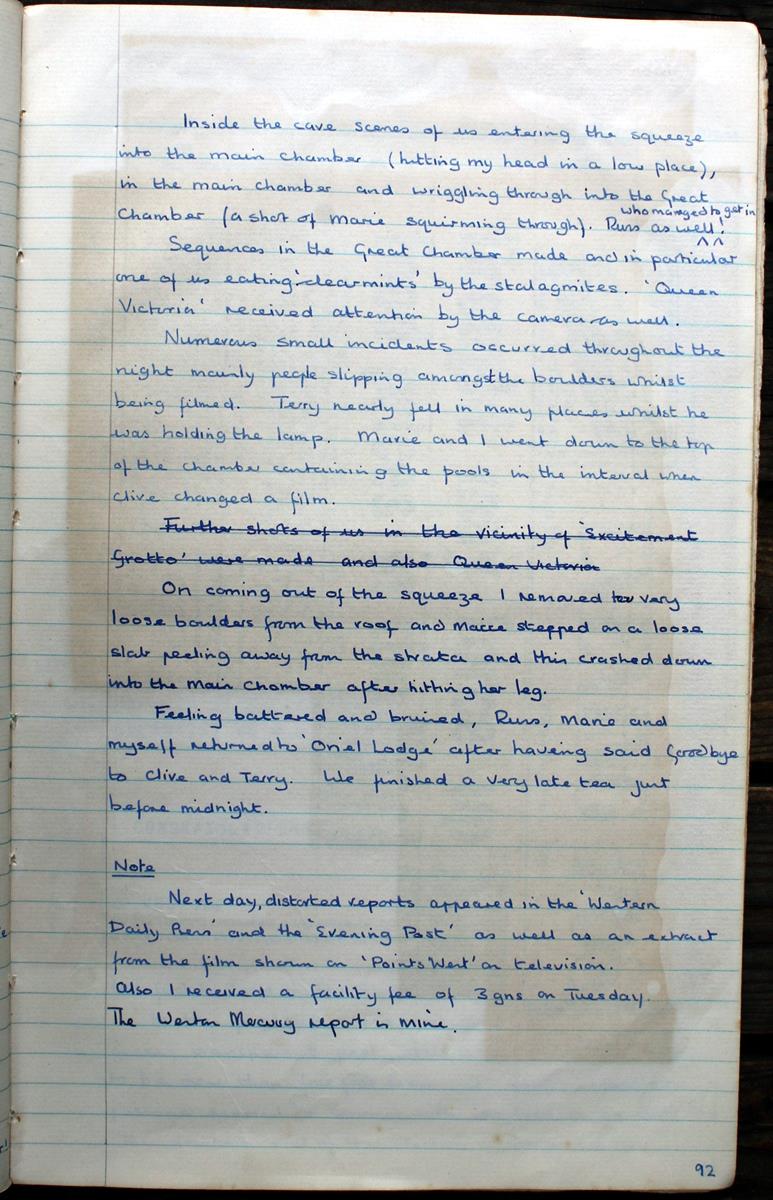 Inside the cave scenes of us entering the squeeze
into the main chamber (hitting my head in a low place),
in the main chamber and wriggling through into the Great
who managed to get in
Chamber (a shot of Marie squirming through). Russ as well!
Sequences in the Great Chamber made and in particular
one of us eating 'clearmints' by the stalagmites. 'Queen
Victoria' received attention by the camera as well.
Numerous small incidents occurred throughout the
night mainly people slipping amongst the boulders whilst
being filmed. Terry nearly fell in many places whilst he
was holding the lamp. Marie and I went down to the top
of the chamber containing the pools in the interval when
Clive changed a film.
Further shots of us in the vicinity of 'Excitement
Grotto' were made and also Queen Victoria
On coming out of the squeeze I removed two very
loose boulders from the roof and Marie stepped on a loose
slab peeling away from the strata and this crashed down
into the main chamber after hitting her leg.
Feeling battered and bruised, Russ, Marie and
myself returned to 'Oriel Lodge' after having said Goodbye
to Clive and Terry. We finished a very late tea just
before midnight.
Note
Next day, distorted reports appeared in the 'Western
Daily Press' and the 'Evening Post' as well as an extract
from the film shown on 'Points West' on television.
Also I received a facility fee of 3gns on Tuesday.
The Weston Mercury report is mine.
92